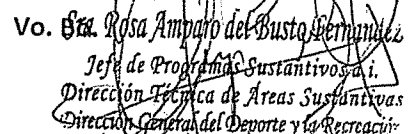 Vo. Bo. Sra. Rosa Amparo del Busto Fernández
Jefe de Programas Sustantivos a.i.
Dirección Técnica de Areas Sustantivas
Dirección General del Deporte y la Recreación